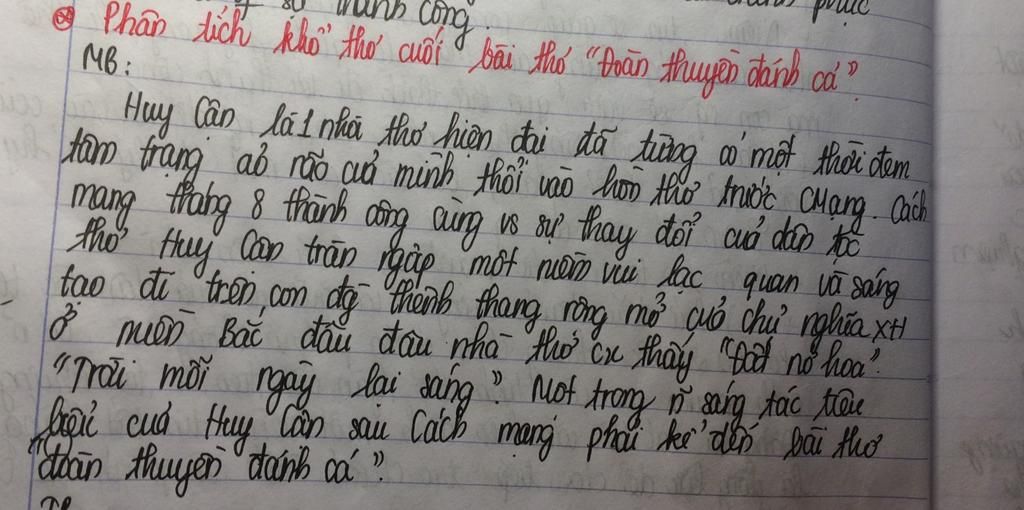 sự thành công
phục
Phân tích khổ thơ cuối bài thơ "Đoàn thuyền đánh cá".
MB:
Huy Cận là 1 nhà thơ hiện đại đã từng có một thời đem
tâm trạng ảo não của mình thổi vào hồn thơ trước CMạng. Cách
mạng tháng 8 thành công cùng vs sự thay đổi của dân tộc
thơ Huy Cận tràn ngập một niềm vui lạc quan và sáng
tạo đi trên con đg thênh thang rộng mở của chủ nghĩa XH
ở miền Bắc đâu đâu nhà thơ cx thấy "Đất nở hoa"
"Trời mỗi ngày lại sáng". Một trong n~ sáng tác tiêu
biểu của Huy Cận sau Cách mạng phải kể đến bài thơ
"đoàn thuyền đánh cá".